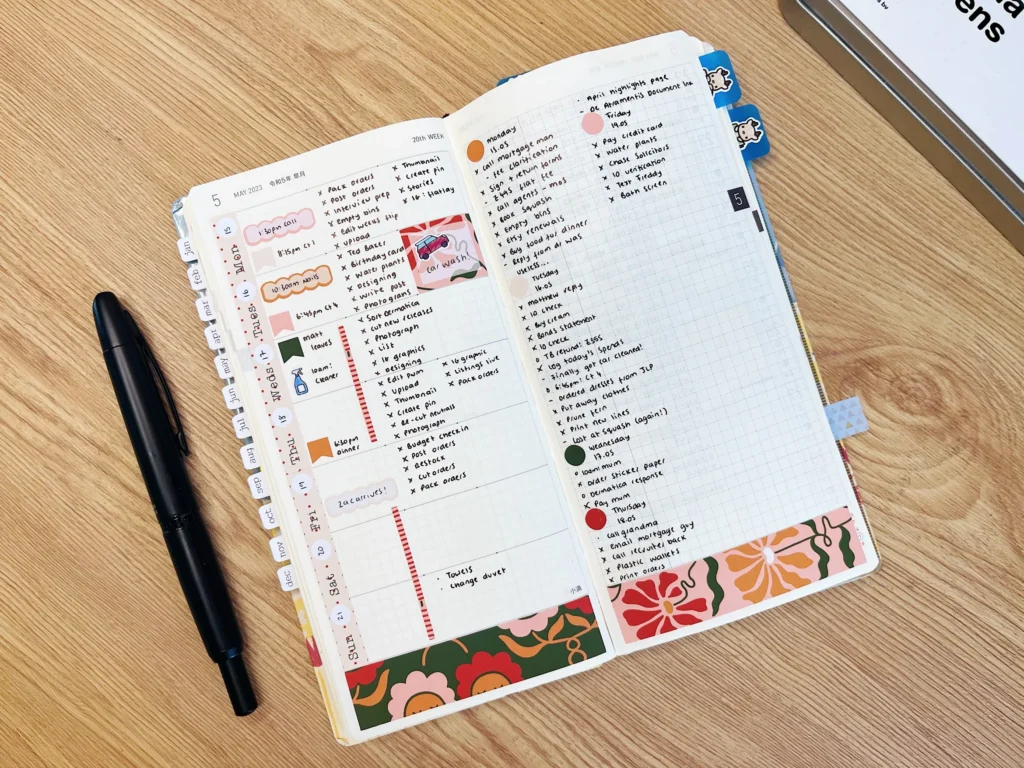 5
MAY 2023 令和5年 皐月
20th WEEK
15
Mon
1:30pm call
8:15pm Ct 1
x Pack orders
x Post orders
x Interview prep
x Empty bins
x Edit weeks flip
x Upload
x Thumbnail
x Create pin
x Stories
16
Tues
10:30am Nails
6:45pm Ct 4
x Ted Baker
x Birthday card
x Water plants
x Designing
x Write post
x Photograms
car wash!
17
Weds
Matt leaves
10am: cleaner
x Sort Dermatica
x Cut new releases
x Photograph
x List
x IG graphics
x Designing
18
Thu
6:30pm Dinner
x Edit PWM
x Upload
x Thumbnail
x Create pin
x Re-cut neutrals
x Photograph
x IG graphic
x Listings live
x Pack orders
19
Fri
Zac arrives!
x Budget check in
x Post orders
x Restock
x Cut orders
x Pack orders
20
Sat
21
Sun
· Towels
· Change duvet
小満
Monday
15.05
x Call mortgage man
x Fee clarification
x Sign & return forms
x Call agents - mos
x Book squash
x Empty bins
x Etsy renewals
x Buy food for dinner
x Reply from dr was
useless...
Tuesday
16.05
x Matthew reply
x IO check
x Buy cream
x Bonds statement
x IO check
x Log today's spends
· Finally got car cleaned!
o 6:45pm: Ct 4
· Ordered dresses from JLP
x Put away clothes
x Prune fern
x Print new lines
- Lost at squash (again!)
Wednesday
17.05
x Order sticker paper
o Dermatica response
x Pay mum
Thursday
18.05
· Call grandma
x Email mortgage guy
x Call recruiter back
x Plastic wallets
x Print orders
· April highlights page
- De Atramentis Document Ink
Friday
19.05
x Pay credit card
x Water plants
x Chase solicitors
x ID verification
x Test Firday
x Bath screen
5
jan
feb
mar
apr
may
jun
jul
aug
sep
oct
nov
dec
ens